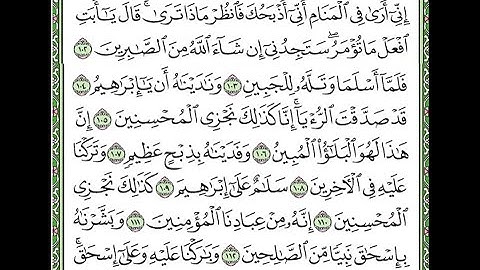 إِنِّىٓ أَرَىٰ فِى ٱلْمَنَامِ أَنِّىٓ أَذْبَحُكَ فَٱنظُرْ مَاذَا تَرَىٰ ۚ قَالَ يَـٰٓأَبَتِ
ٱفْعَلْ مَا تُؤْمَرُ ۖ سَتَجِدُنِىٓ إِن شَآءَ ٱللَّهُ مِنَ ٱلصَّـٰبِرِينَ ١٠٢
فَلَمَّآ أَسْلَمَا وَتَلَّهُۥ لِلْجَبِينِ ١٠٣ وَنَـٰدَيْنَـٰهُ أَن يَـٰٓإِبْرَٰهِيمُ ١٠٤
قَدْ صَدَّقْتَ ٱلرُّءْيَآ ۚ إِنَّا كَذَٰلِكَ نَجْزِى ٱلْمُحْسِنِينَ ١٠٥ إِنَّ
هَـٰذَا لَهُوَ ٱلْبَلَـٰٓؤُا۟ ٱلْمُبِينُ ١٠٦ وَفَدَيْنَـٰهُ بِذِبْحٍ عَظِيمٍ ١٠٧ وَتَرَكْنَا
عَلَيْهِ فِى ٱلْـَٔاخِرِينَ ١٠٨ سَلَـٰمٌ عَلَىٰٓ إِبْرَٰهِيمَ ١٠٩ كَذَٰلِكَ نَجْزِى
ٱلْمُحْسِنِينَ ١١٠ إِنَّهُۥ مِنْ عِبَادِنَا ٱلْمُؤْمِنِينَ ١١١ وَبَشَّرْنَـٰهُ
بِإِسْحَـٰقَ نَبِيًّا مِّنَ ٱلصَّـٰلِحِينَ ١١٢ وَبَـٰرَكْنَا عَلَيْهِ وَعَلَىٰٓ إِسْحَـٰقَ ۚ